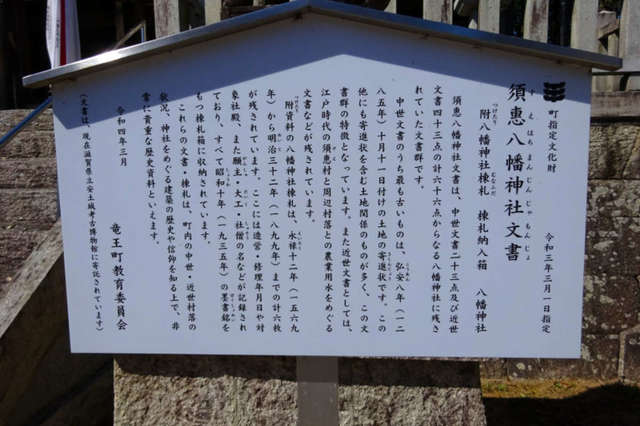 町指定文化財　令和三年三月一日指定
須恵八幡神社文書
すえはちまんじんじゃもんじょ
附八幡神社棟札　棟札納入箱　八幡神社
つけたり　むなふだ
須恵八幡神社文書は、中世文書二十三点及び近世
文書四十三点の計六十六点からなる八幡神社に残さ
れていた文書群です。
中世文書のうち最も古いものは、弘安八年（一二
こうあん
八五年）十月十一日付けの土地の寄進状です。この
他にも寄進状を含む土地関係のものが多く、この文
書群の特徴となっています。また近世文書としては、
江戸時代の須恵村と周辺村落との農業用水をめぐる
文書などが残されています。
附資料の八幡神社棟札は、永禄十二年（一五六九
つけたり　えいろく
年）から明治三十二年（一八九九年）までの計六枚
が残されています。ここには造営・修理年月日や対
象社殿、また願主・大工・社僧の名などが記録され
ており、すべて昭和十年（一九三五年）の墨書銘を
もつ棟札箱に収納されています。
これらの文書・棟札は、町内の中世・近世村落の
状況、神社をめぐる建築の歴史や信仰を知る上で、非
常に貴重な歴史資料といえます。
令和四年三月
竜王町教育委員会
（文書は、現在滋賀県立安土城考古博物館に寄託されています）